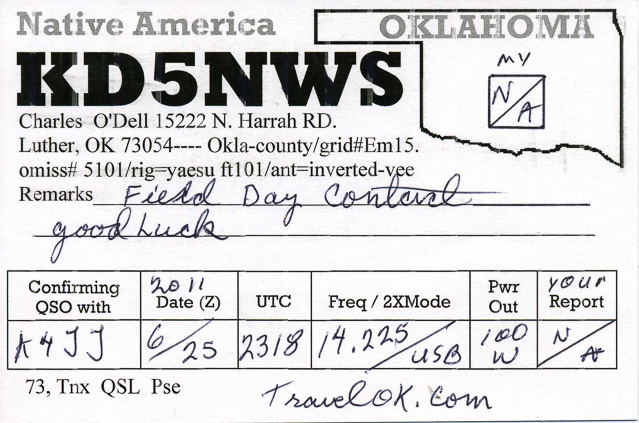 Native America OKLAHOMA
KD5NWS
MY
N/A
Charles O'Dell 15222 N. Harrah RD.
Luther, OK 73054---- Okla-county/grid#Em15.
omiss# 5101/rig=yaesu ft101/ant=inverted-vee
Remarks Field Day Contact
good Luck
Confirming QSO with 2011 Date (Z) UTC Freq / 2XMode Pwr Out your Report
K4JJ 6/25 2318 14.225/USB 100 W N/A
73, Tnx QSL Pse
TravelOK.com